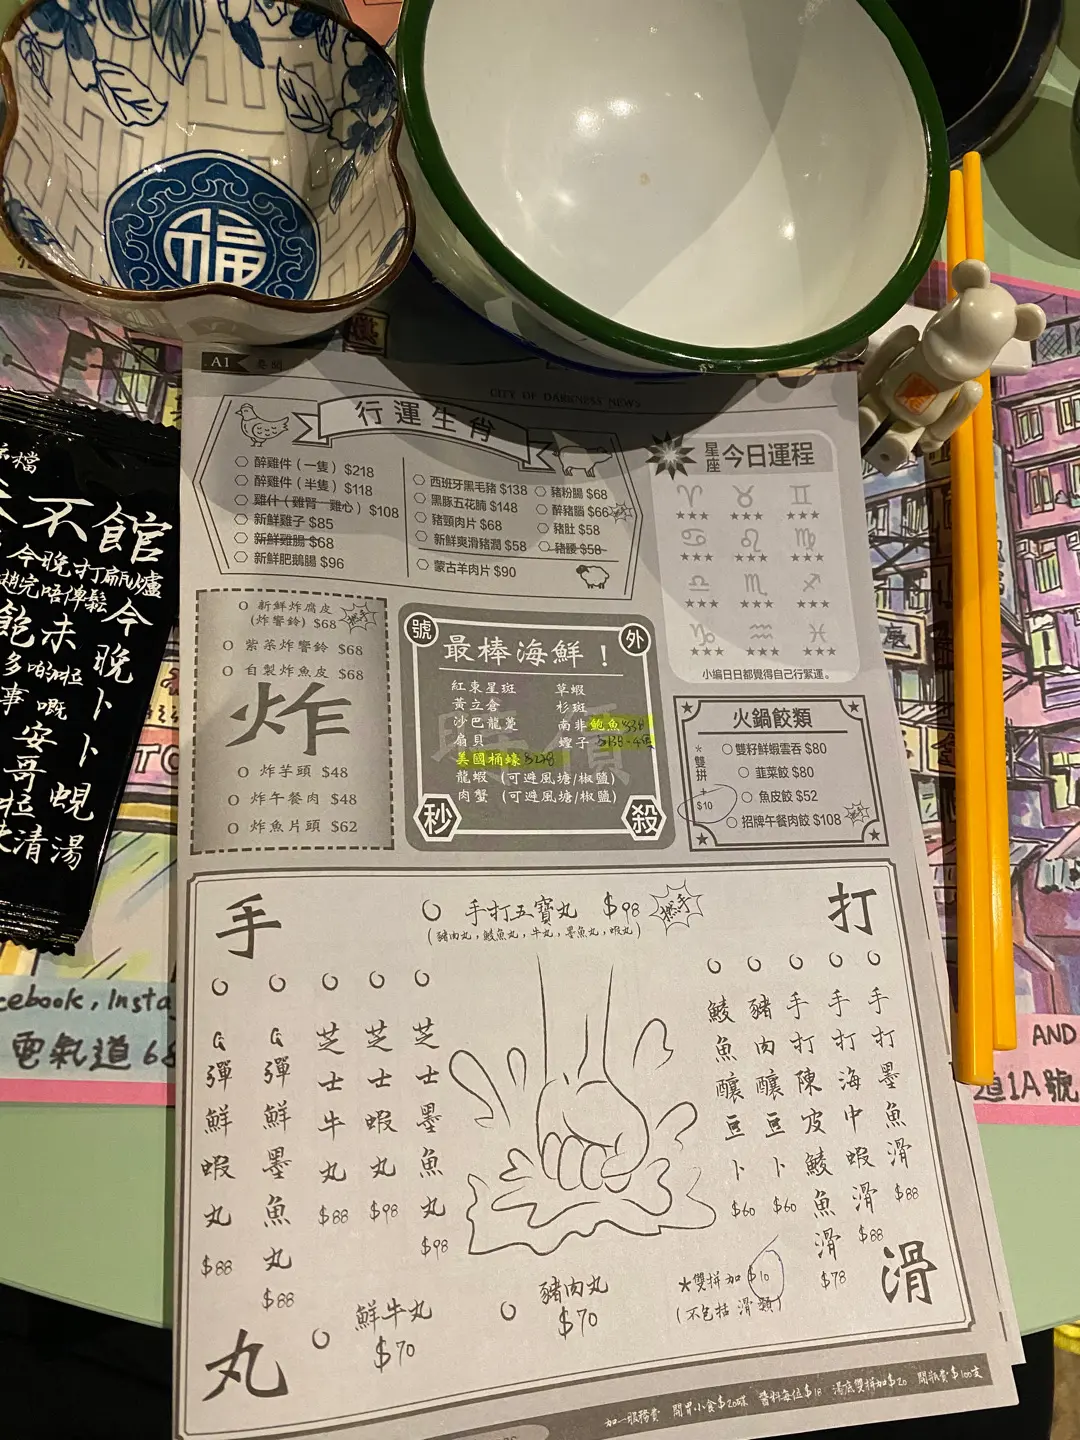 福
A1
要聞
CITY OF DARKNESS NEWS
行運生肖
醉雞件(一隻) $218
醉雞件(半隻) $118
雞什(雞腎 雞心) $108
新鮮雞子 $85
新鮮雞腸 $68
新鮮肥鵝腸 $96
西班牙黑毛豬 $138
黑豚五花腩 $148
豬頸肉片 $68
新鮮爽滑豬潤 $58
蒙古羊肉片 $90
豬粉腸 $68
醉豬腦 $66
豬肚 $58
豬腰 $58
星座 今日運程
小編日日都覺得自己行緊運。
新鮮炸腐皮
(炸響鈴) $68
紫菜炸響鈴 $68
自製炸魚皮 $68
炸
炸芋頭 $48
炸午餐肉 $48
炸魚片頭 $62
號外
最棒海鮮!
紅東星斑
黃立倉
沙巴龍躉
扇貝
美國桶蠔
龍蝦 (可避風塘/椒鹽)
肉蟹 (可避風塘/椒鹽)
草蝦
杉斑
南非鮑魚
蟶子
秒殺
火鍋餃類
*雙拼+$10
雙籽鮮蝦雲吞 $80
韮菜餃 $80
魚皮餃 $52
招牌午餐肉餃 $108
手打丸滑
手打五寶丸 $98
(豬肉丸,鯪魚丸,牛丸,墨魚丸,蝦丸)
Q彈鮮蝦丸 $88
Q彈鮮墨魚丸 $88
芝士牛丸 $88
芝士蝦丸 $98
芝士墨魚丸 $98
鯪魚釀豆卜 $60
豬肉釀豆卜 $60
手打陳皮鯪魚滑 $78
手打海中蝦滑 $88
手打墨魚滑 $88
鮮牛丸
$70
豬肉丸
$70
*雙拼加$10
(不包括滑類)
加一服務費 開胃小食$20/碟 醬料每位$18 湯底雙拼加$20 開瓶費$100支
不館
今晚打邊爐
今晚
卜卜蜆
清湯
電氣道 68
AND
道1A號